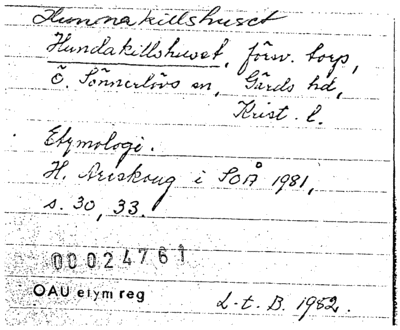 Hunnakillshuset
Hundakillshuset, försv. torp,
Ö. Sönnerslövs sn, Gärds hd,
Krist. l.
Etymologi.
H. Areskoug i SOÅ 1981,
s. 30, 33.
00024761
OAU etym reg
L-t. B. 1982.